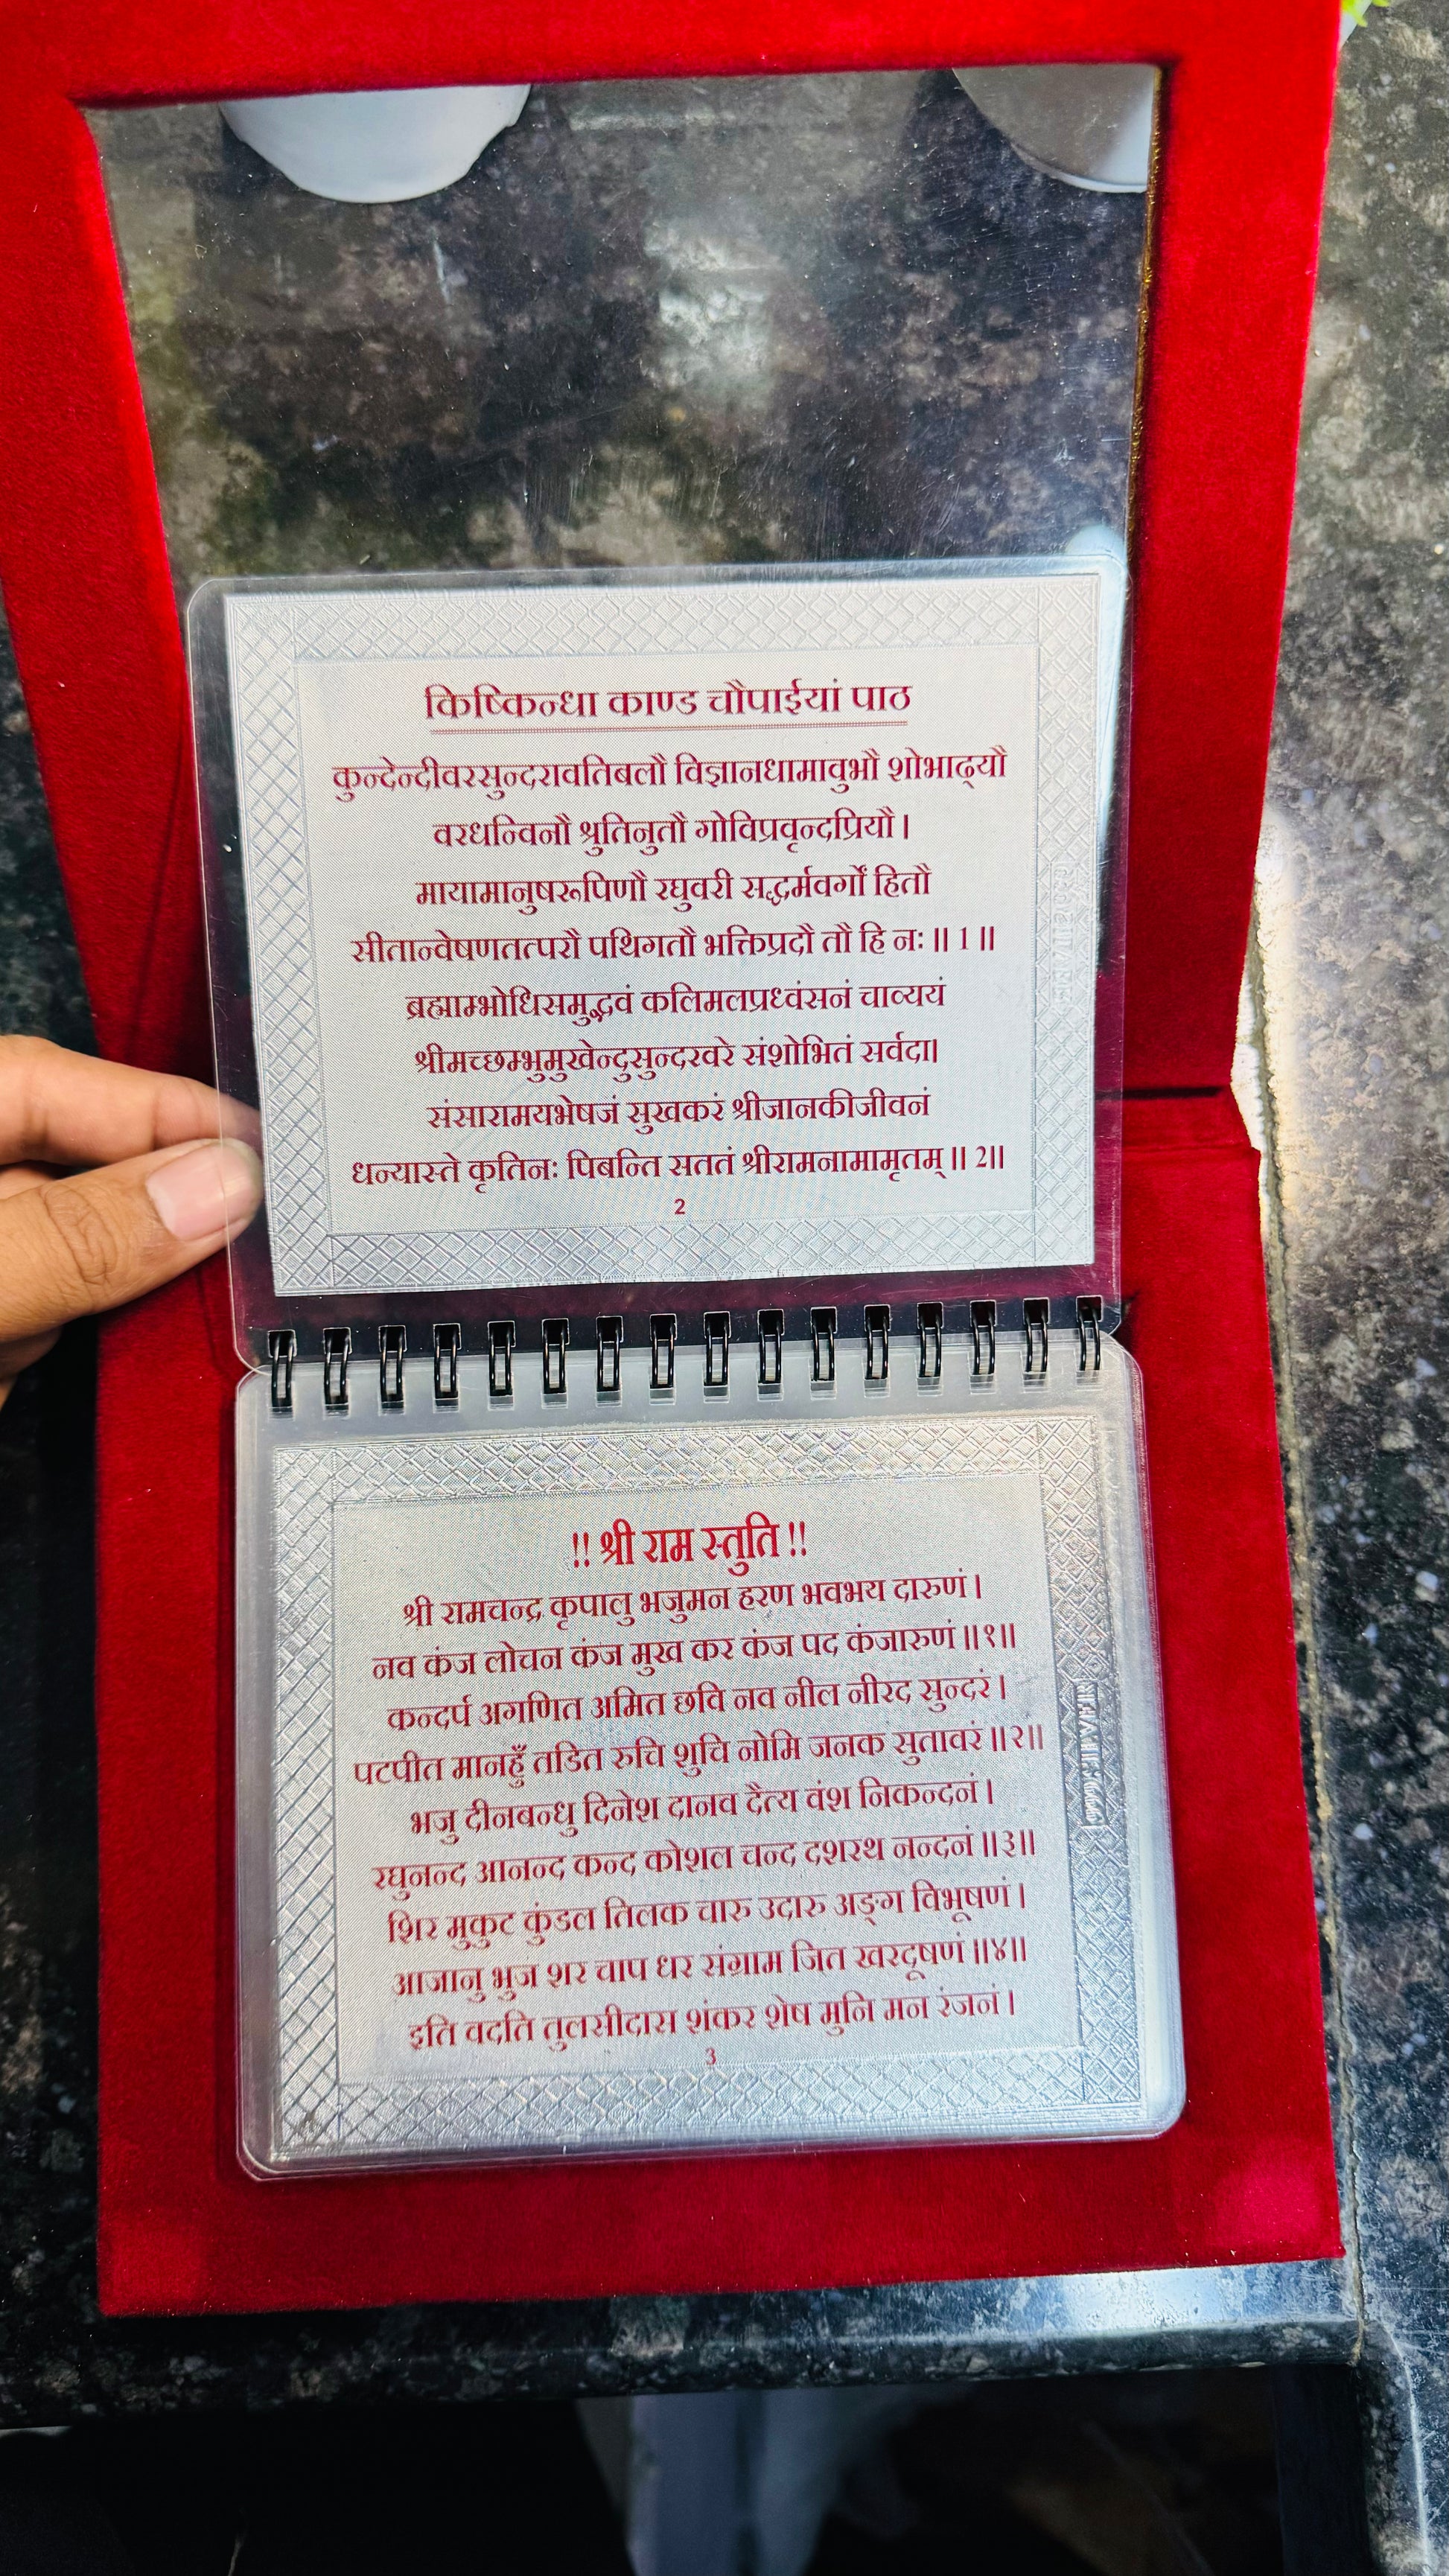 किष्किन्धा काण्ड चौपाईयां पाठ
कुन्देन्दीवरसुन्दरावतिबलौ विज्ञानधामावुभौ शोभाढ्यौ
वरधन्विनौ श्रुतिनुतौ गोविप्रवृन्दप्रियौ।
मायामानुषरूपिणौ रघुवरी सद्धर्मवर्गों हितौ
सीतान्वेषणतत्परौ पथिगतौ भक्तिप्रदौ तौ हि नः॥ 1॥
ब्रह्माम्भोधिसमुद्भवं कलिमलप्रध्वंसनं चाव्ययं
श्रीमच्छम्भुमुखेन्दुसुन्दरवरे संशोभितं सर्वदा।
संसारामयभेषजं सुखकरं श्रीजानकीजीवनं
धन्यास्ते कृतिनः पिबन्ति सततं श्रीरामनामामृतम्॥ 2॥
2
!! श्री राम स्तुति !!
श्री रामचन्द्र कृपालु भजुमन हरण भवभय दारुणं।
नव कंज लोचन कंज मुख कर कंज पद कंजारुणं॥१॥
कन्दर्प अगणित अमित छवि नव नील नीरद सुन्दरं।
पटपीत मानहुँ तडित रुचि शुचि नोमि जनक सुतावरं॥२॥
भजु दीनबन्धु दिनेश दानव दैत्य वंश निकन्दनं।
रघुनन्द आनन्द कन्द कोशल चन्द दशरथ नन्दनं॥३॥
शिर मुकुट कुंडल तिलक चारु उदारु अङ्ग विभूषणं।
आजानु भुज शर चाप धर संग्राम जित खरदूषणं॥४॥
इति वदति तुलसीदास शंकर शेष मुनि मन रंजनं।
3